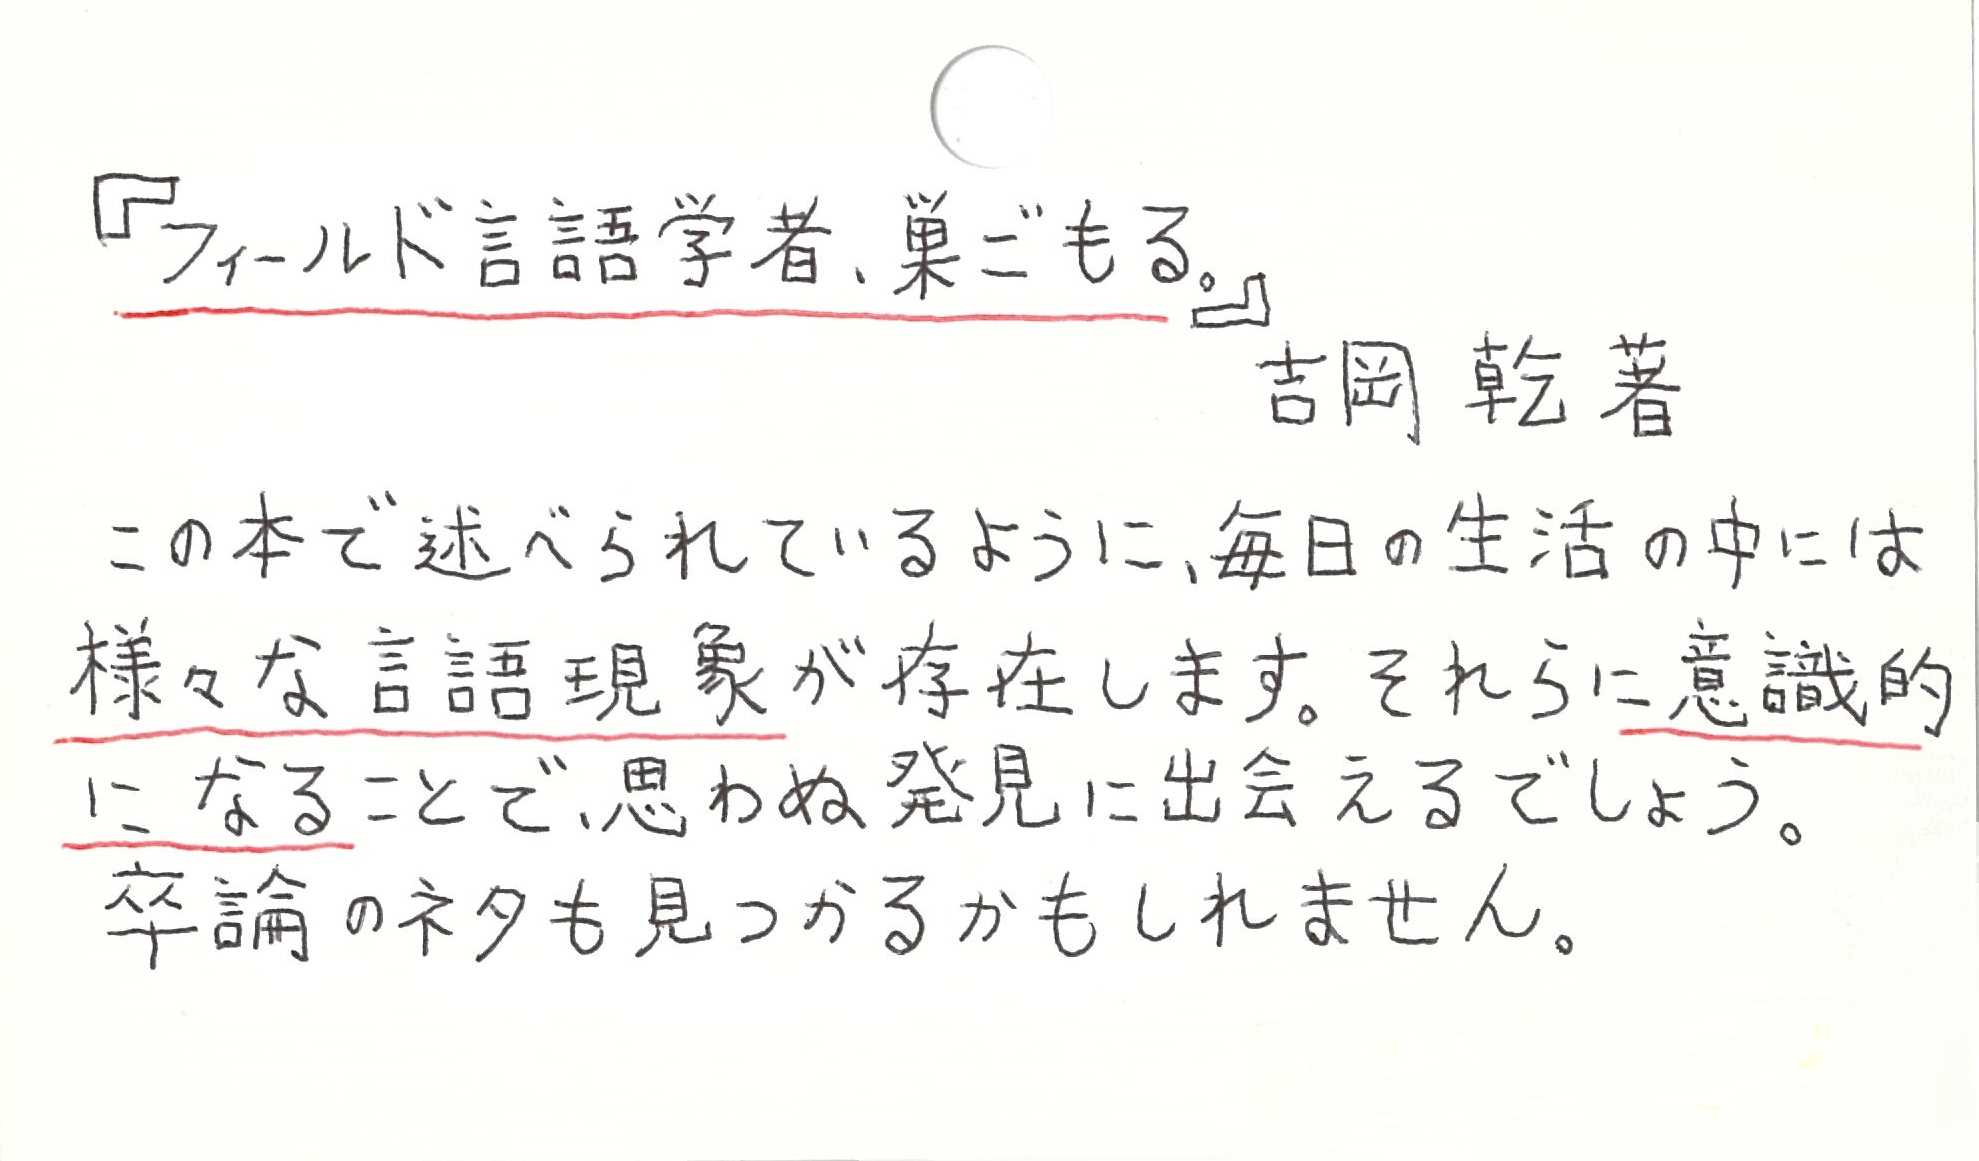 『フィールド言語学者、巣ごもる。』
吉岡 乾 著
この本で述べられているように、毎日の生活の中には
様々な言語現象が存在します。それらに意識的
になることで、思わぬ発見に出会えるでしょう。
卒論のネタも見つかるかもしれません。